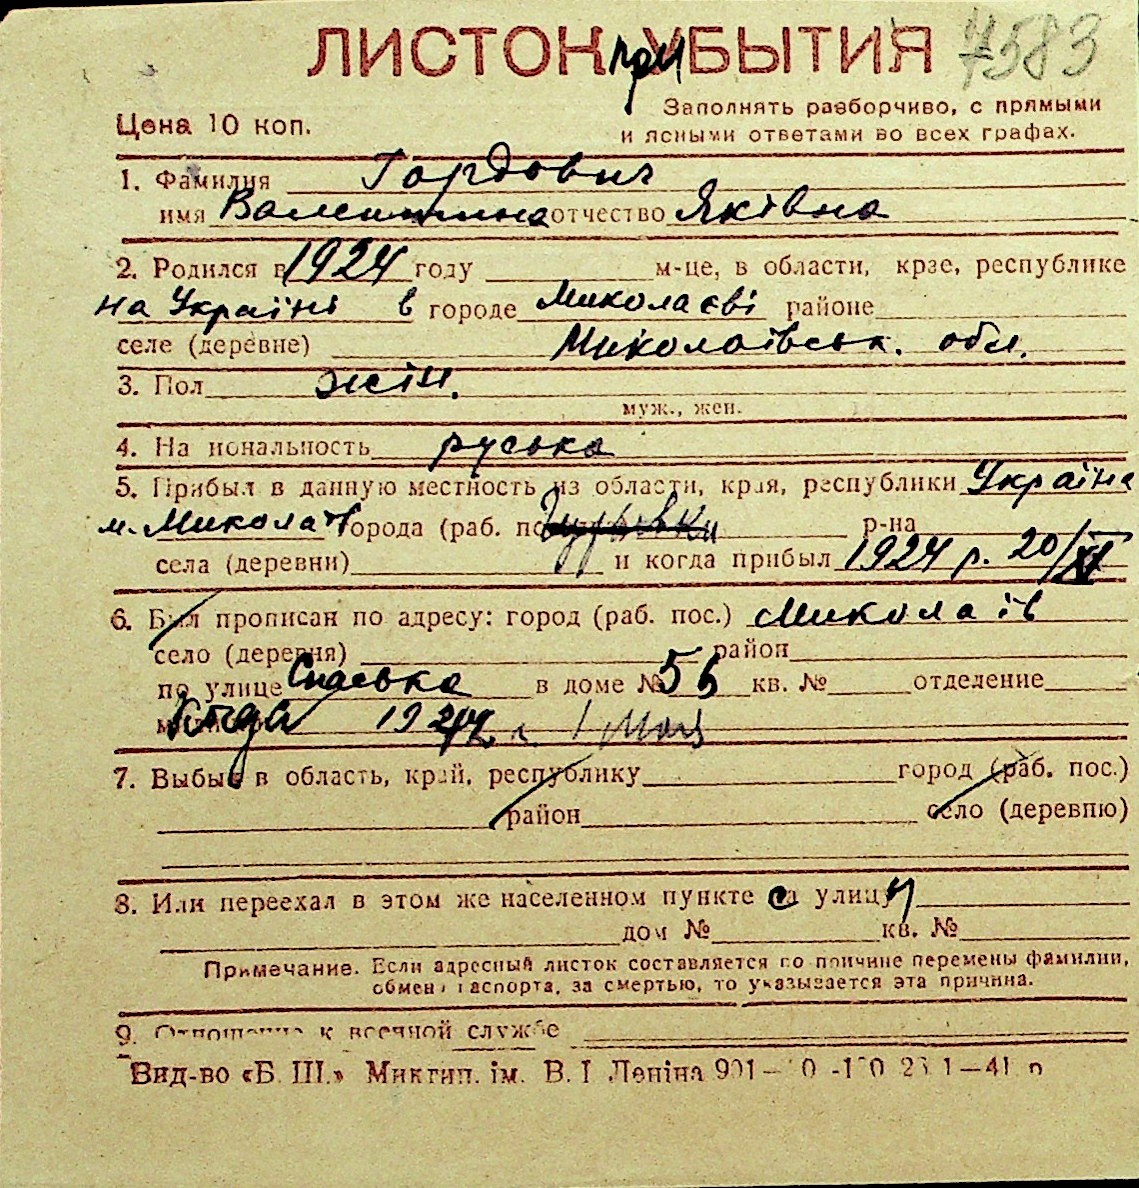 ЛИСТОК при УБЫТИЯ 7583
Цена 10 коп.
Заполнять разборчиво, с прямыми
и ясными ответами во всех графах.
1. Фамилия Гордович
имя Валентина отчество Яківна
2. Родился в 1924 году м-це, в области, крае, республике
на Україні в городе Миколаєві районе
селе (деревне) Миколаївськ. обл.
3. Пол жін.
муж., жен.
4. Национальность руська
5. Прибыл в данную местность из области, края, республики Україна
м. Миколаїв города (раб. р-на
села (деревни) и когда прибыл 1924 р. 20/XI
6. Был прописан по адресу: город (раб. пос.) Миколаїв
село (деревня) район
по улице Спаська в доме № 56 кв. № отделение
Когда 1 мая
7. Выбыл в область, край, республику город (раб. пос.)
район село (деревню)
8. Или переехал в этом же населенном пункте с улицы
дом № кв. №
Примечание. Если адресный листок составляется по причине перемены фамилии,
обмена паспорта, за смертью, то указывается эта причина.
9. Отношение к военной службе
Вид-во «Б. Ш.» Микгип. ім. В. І Леніна